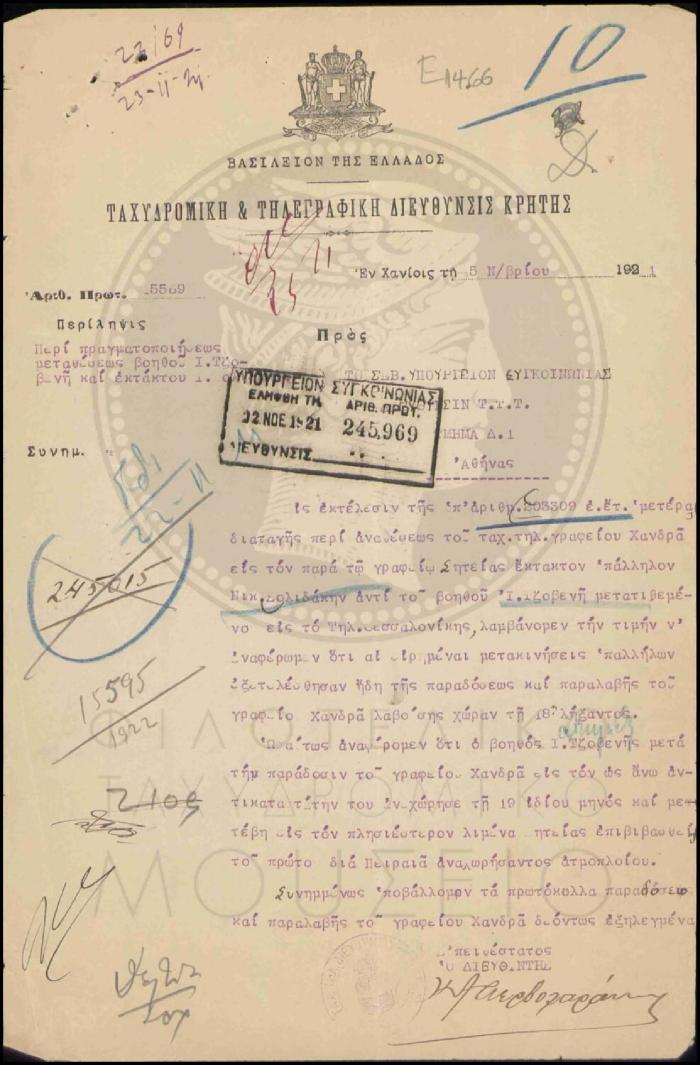 22/69
23-11-21
Ε1466
10
ΒΑΣΙΛΕΙΟΝ ΤΗΣ ΕΛΛΑΔΟΣ
ΤΑΧΥΔΡΟΜΙΚΗ & ΤΗΛΕΓΡΑΦΙΚΗ ΔΙΕΥΘΥΝΣΙΣ ΚΡΗΤΗΣ
Ἐν Χανίοις τῇ 5 Ν/βρίου 1921
Ἀριθ. Πρωτ. 5509
Περίληψις
Περί πραγματοποιήσεως
μεταθέσεως βοηθοῦ Ι.Τζο-
βενῆ καί ἐκτάκτου
Πρὸς
ΤΟ ΣΕΒ.ΥΠΟΥΡΓΕΙΟΝ ΣΥΓΚΟΙΝΩΝΙΑΣ
Τ.Τ.Τ.
Δ.1
Ἀθήνας
ΥΠΟΥΡΓΕΙΟΝ ΣΥΓΚΟΙΝΩΝΙΑΣ
ΕΛΗΦΘΗ ΤΗ ΑΡΙΘ. ΠΡΩΤ.
22 ΝΟΕ 1921 245,969
ΔΙΕΥΘΥΝΣΙΣ
Συνημ.
22-11
245015
15595
1922
2108
Ἰς ἐκτέλεσιν τῆς ὑπ'ἀριθμ.203309 ἐ.ἔτ. ὑμετέρα
διαταγῆς περί ἀναθέσεως τοῦ ταχ.τηλ.γραφείου Χανδρᾶ
εἰς τόν παρά τῷ γραφείῳ Σητείας ἔκτακτον ὑπάλληλον
Νικ. ἀντί τοῦ βοηθοῦ Ἰ.Τζοβενῆ μετατιθεμέ-
νο εἰς τό Τηλ.Θεσσαλονίκης,λαμβάνομεν τήν τιμήν ν'
ἀναφέρωμεν ὅτι αἱ εἰρημέναι μετακινήσεις ὑπαλλήλων
ἐξετελέσθησαν ἤδη τῆς παραδόσεως καί παραλαβῆς τοῦ
γραφείο Χανδρᾶ λαβούσης χώραν τῇ 18 λήξαντος.
Ὡσαύτως ἀναφέρομεν ὅτι ὁ βοηθός Ι.Τζοβενῆς μετά
τήν παράδοσιν τοῦ γραφείου Χανδρᾶ εἰς τόν ὡς ἄνω ἀν-
τικαταστάτην του ἀνεχώρησε τῇ 19 ἰδίου μηνός καί με
τέβη εἰς τόν πλησιέστερον λιμένα ητείας ἐπιβιβασθεί
τοῦ πρώτο διά Πειραιᾶ ἀναχωρήσαντος ἀτμοπλοίου.
Συνημμένως ὑποβάλλομεν τά πρωτόκολλα παραδόσεω
καί παραλαβῆς τοῦ γραφείου Χανδρᾶ δεόντως ἐξηλεγμένα
Εὐπειθέστατος
Ὁ ΔΙΕΥΘΥΝΤΗΣ
ΦΙΛΟΤΕΛΙΚΟ
ΤΑΧΥΔΡΟΜΙΚΟ
ΜΟΥΣΕΙΟ